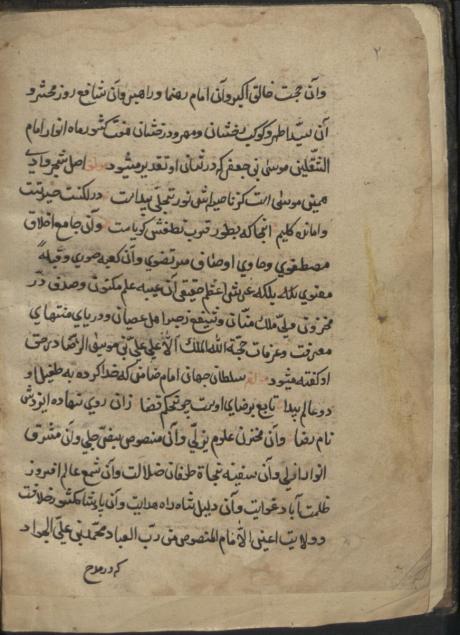 ۲
وآن حجت خالق اکبر وآن امام رهنما و راهبر وآن شافع روز محشر و
آن سید اطهر و کوکب رخشان ومهر درخشان هفت کشور ماه انور امام
الثقلین موسی بن جعفر که در شان او تقدیر میشود اصل شجر وادی
موسی است کز ناصیه اش نور تجلی پیداست در لکنت حیرتست
و امانده کلیم آنجا که بطور قرب نطقش گویاست وآن جامع اخلاق
مصطفوی وحاوی اوصاف مرتضوی وآن کعبه صوری وقبلهٔ
معنوی بلکه عرش اعظم حقیقی آن عیبه علم مکنون وصدف در
مخزون ملک منان وشفیع زمره اهل عصیان و دریای منتهای
معرفت وعرفان حجة الله الملک الاعلی علی بن موسی الرضا در حق
او گفته میشود سلطان جهان امام ضامن که خدا کرده به طفیل او
دو عالم پیدا تابع برضای اوست چو حکم قضا زان روی نهاده ایزدش
نام رضا وآن مخزن علوم یزلی وآن منصوص بنص جلی وآن مشرق
انوار ازلی وآن سفینه نجاة طوفان ضلالت وآن شمع عالم افروز
ظلمت آباد غوایت وآن دلیل شاه راه هدایت وآن پادشاه کشور خلافت
و ولایت اعنی الامام المنصوص من رب العباد محمد بن علی الجواد
که در مدح